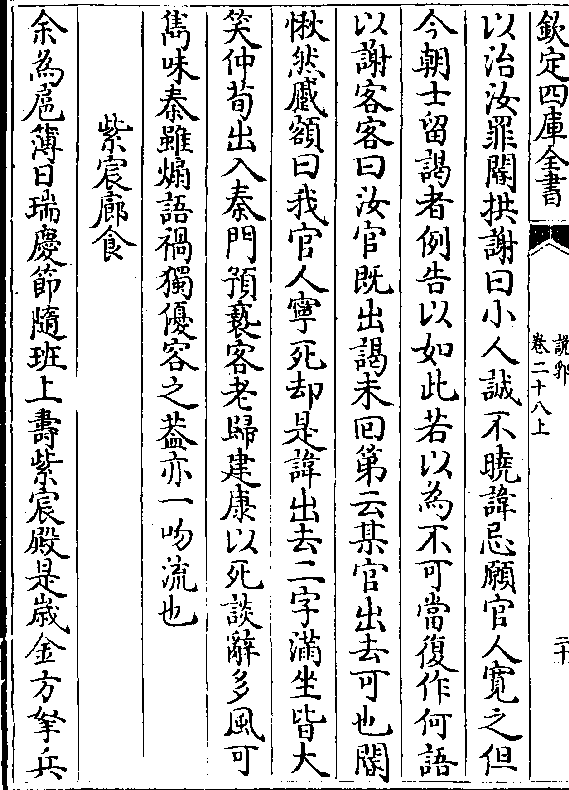 欽定四庫全書
說郛
卷二十八上
二十
以治汝罪閽拱謝曰小人誠不曉諱忌願官人寛之但
今朝士留謁者例告以如此若以為不可當復作何語
以謝客客曰汝官既出謁未囘第云某官出去可也閽
愀然蹙額曰我官人寧死却是諱出去二字滿坐皆大
笑仲荀出入秦門預褻客老歸建康以死談辭多風可
雋味秦雖煽語禍獨優容之葢亦一吻流也
紫宸廊食
余為扈簿日瑞慶節隨班上壽紫宸殿是歲金方拏兵